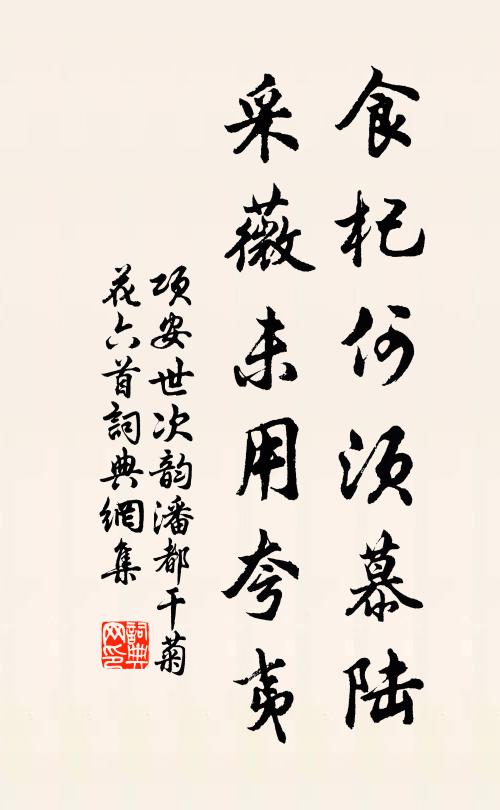 食杞何须慕陆
采薇未用夸夷
项安世次韵潘都干菊
花六首词典網集
詞典
网印